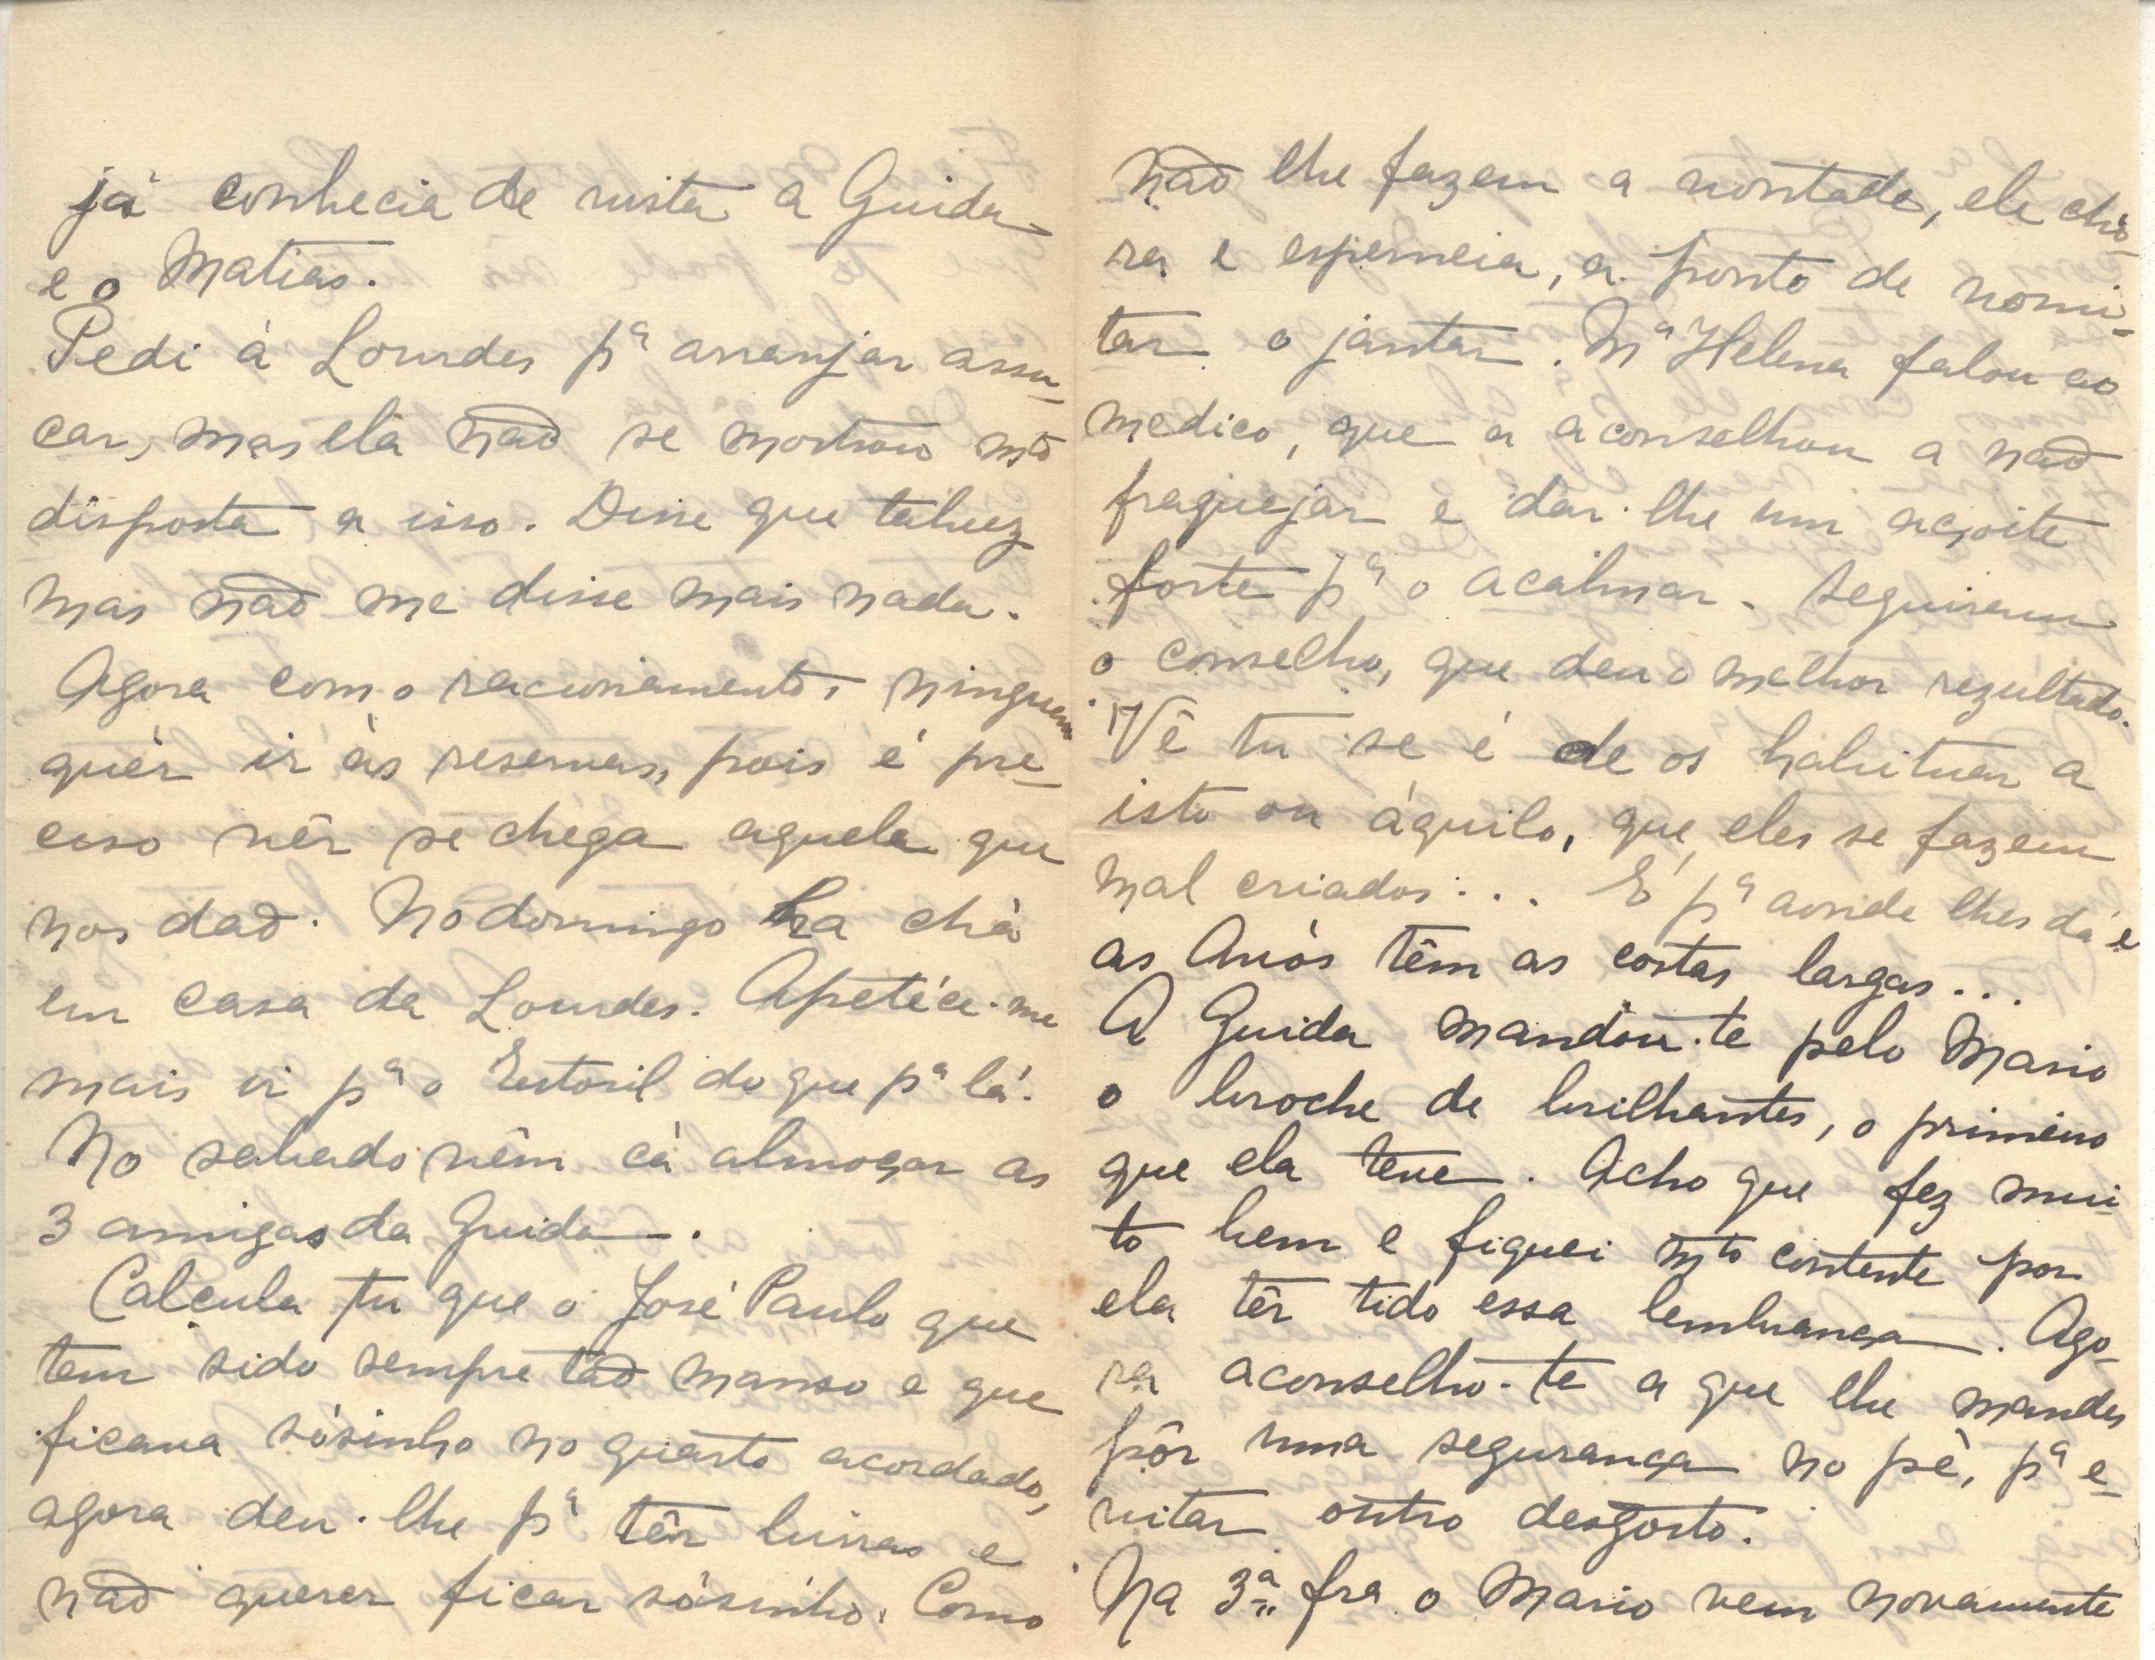 já conhecia de vista a Guida
e o Matias.
Pedi à Lourdes pª arranjar assu-
car, mas ela não se mostrou mtº
disposta a isso. Disse que talvez
mas não me disse mais nada.
Agora com o racionamento, ninguem
quér ir às reservas, pois é pre-
ciso vêr se chega aquela que
nos dão. No domingo ha chá
em casa da Lourdes. Apetéce-me
mais ir pª o Estoril do que pª lá.
No sabado vêm cá almoçar as
3 amigas da Guida.
Calcula tu que o José Paulo que
tem sido sempre tão manso e que
ficava sósinho no quarto acordado,
agora deu-lhe pª têr birras e
não querer ficar sósinho. Como
não lhe fazem a vontade, ele chó-
ra e esperneia, a ponto de vomi-
tar o jantar. Mª Helena falou ao
medico, que a aconselhou a não
fraquejar e dar-lhe um açoite
forte pª o acalmar. Seguiram
o conselho, que deu o melhor rezultado.
Vê tu se é de os habituar a
isto ou áquilo, que eles se fazem
mal criados... É pª aonde lhes dá e
as Avós têm as costas largas...
A Guida mandou-te pelo Mario
o broche de brilhantes, o primeiro
que ela teve. Acho que fez mui-
to bem e fiquei mtº contente por
ela têr tido essa lembrança. Ago-
ra aconselho-te a que lhe mandes
pôr uma segurança no pé, pª e-
vitar outro desgosto.
Na 3ª fra o Mario vem novamente